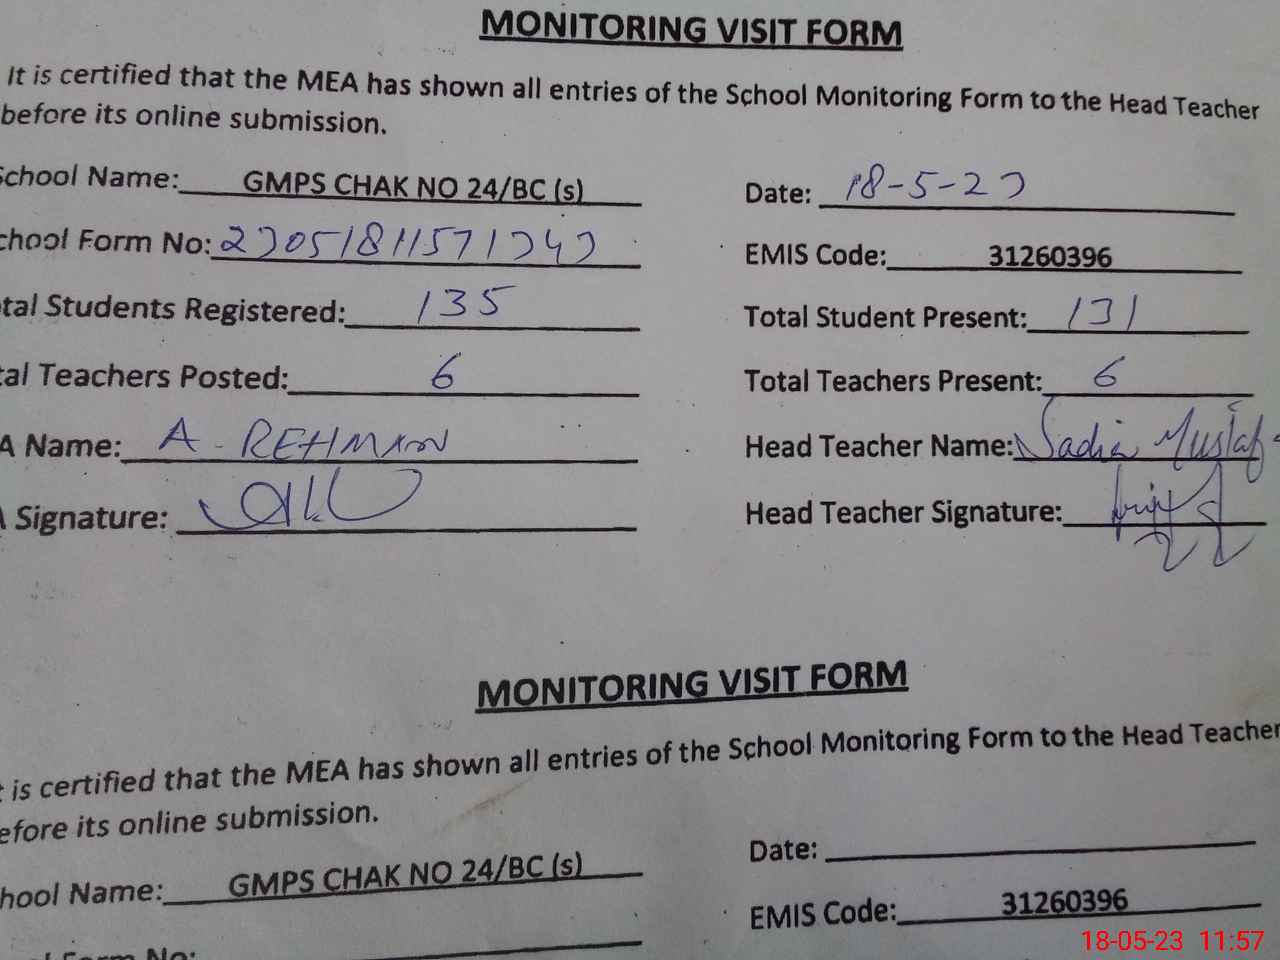 MONITORING VISIT FORM
It is certified that the MEA has shown all entries of the School Monitoring Form to the Head Teacher
before its online submission.
School Name: GMPS CHAK NO 24/BC (s) Date: 18-5-23
chool Form No: EMIS Code: 31260396
tal Students Registered: 135 Total Student Present: 131
tal Teachers Posted: 6 Total Teachers Present: 6
A Name: A - REHMAN Head Teacher Name: Sadia Mustaf
A Signature: Head Teacher Signature:
MONITORING VISIT FORM
t is certified that the MEA has shown all entries of the School Monitoring Form to the Head Teacher
efore its online submission.
hool Name: GMPS CHAK NO 24/BC (s) Date:
EMIS Code: 31260396
l Form No:
18-05-23 11:57